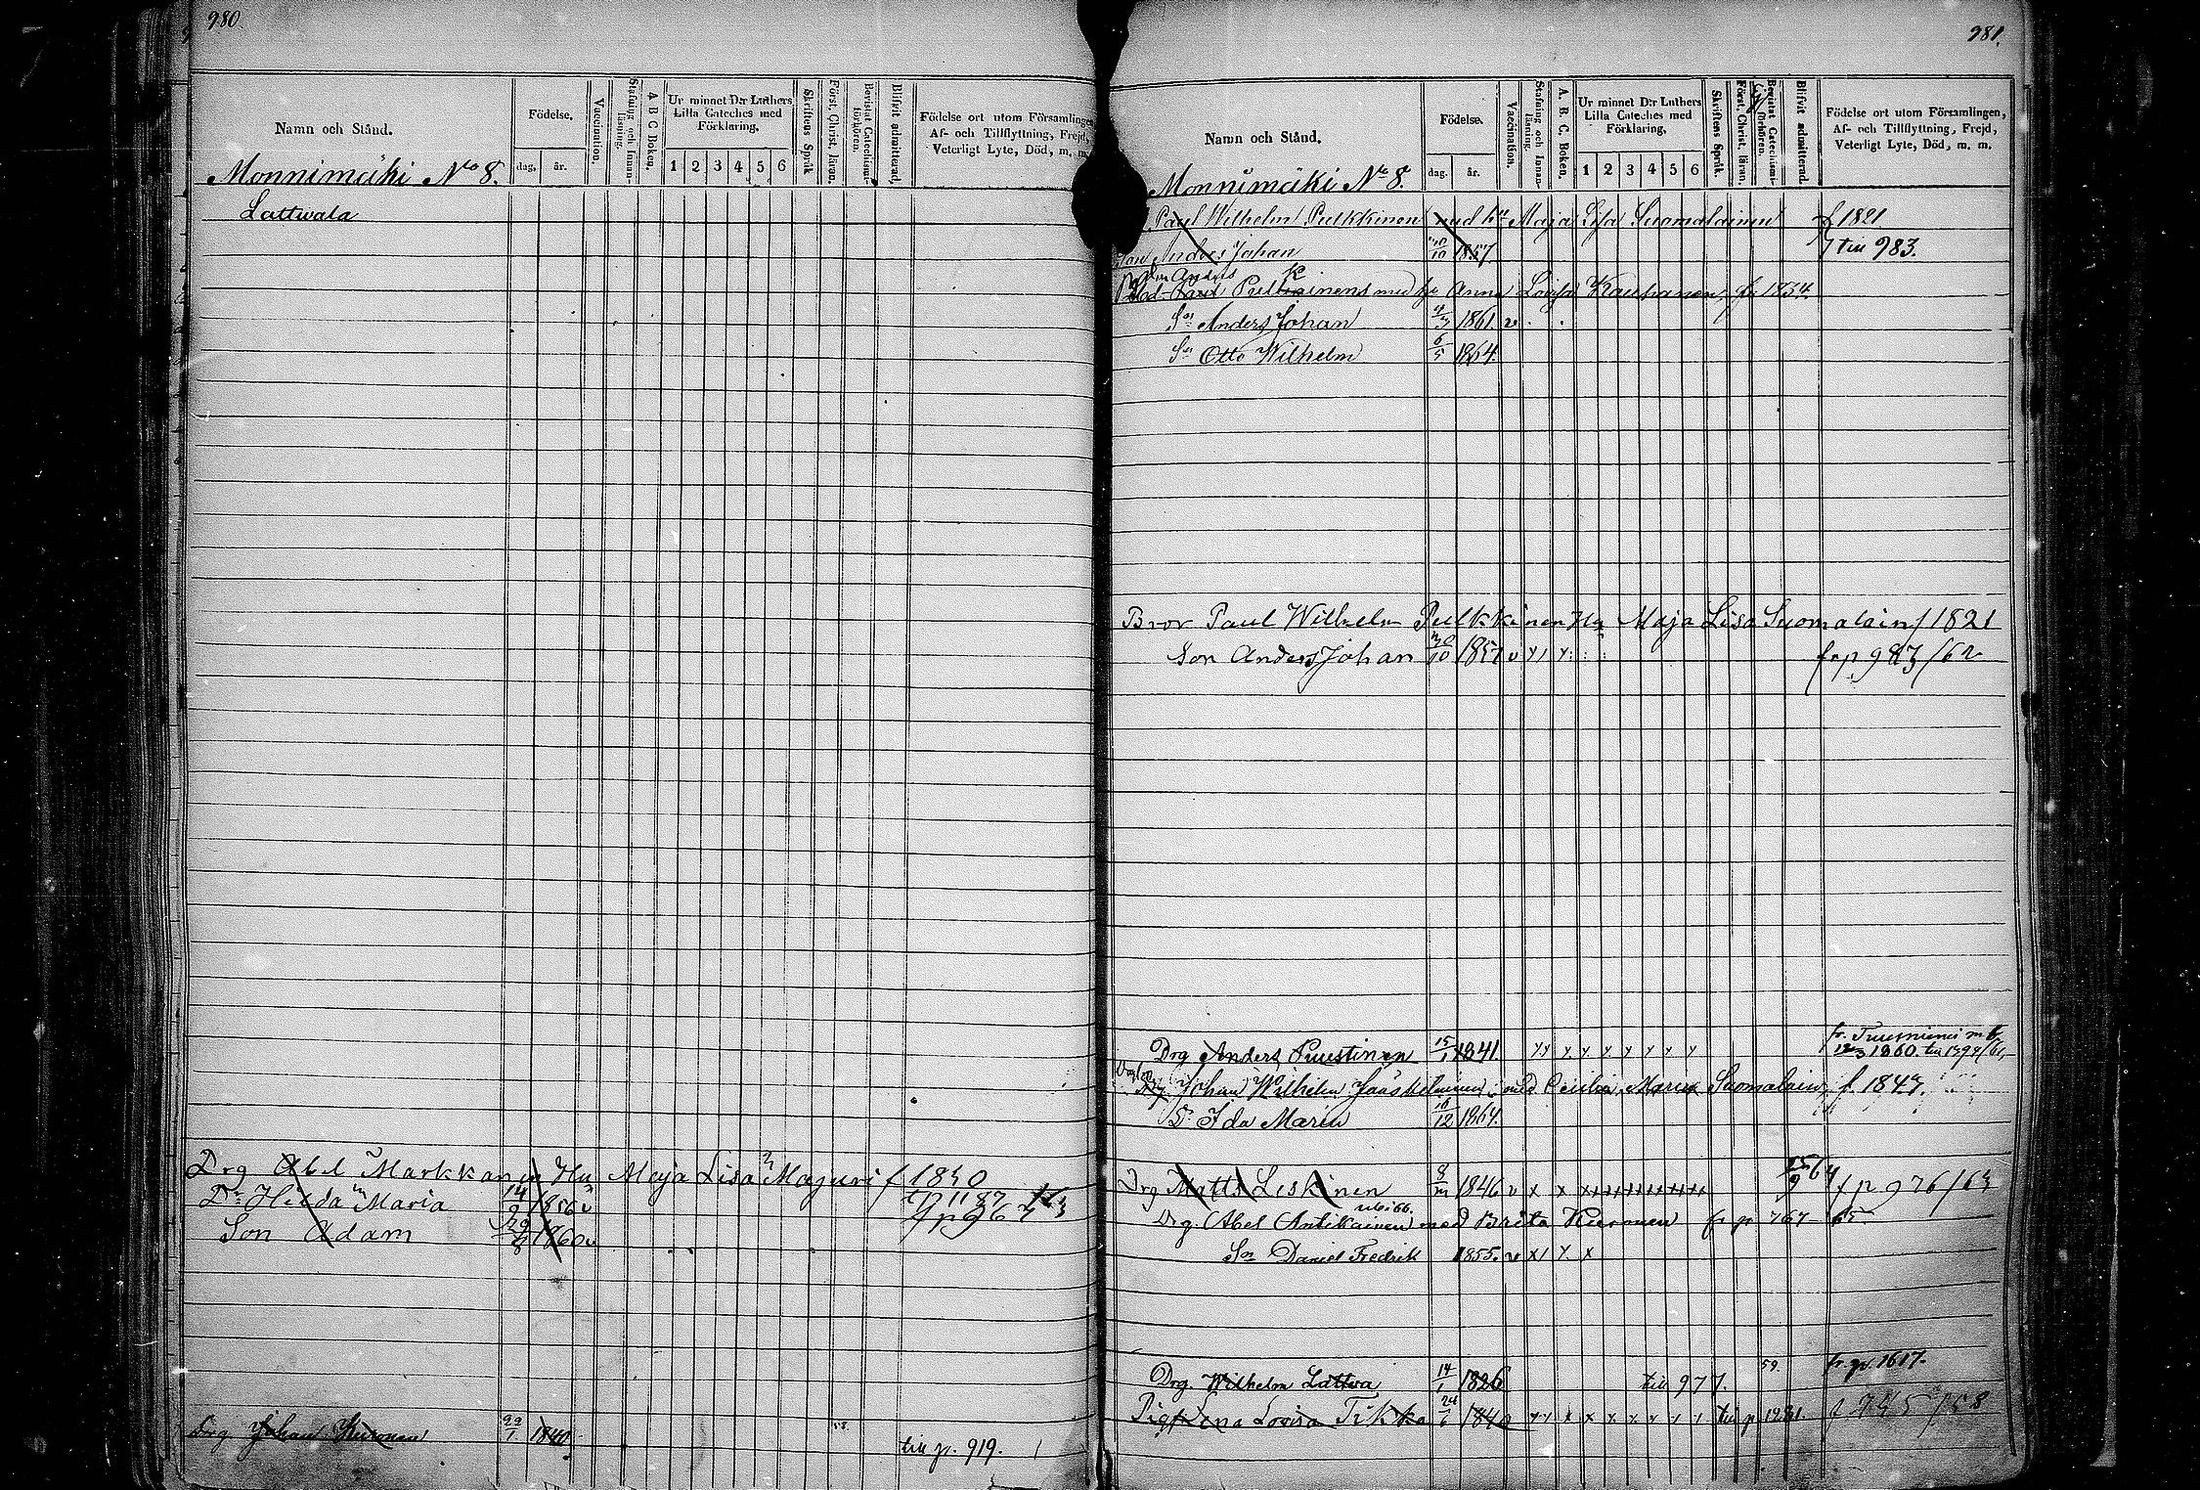 980
Namn och Stånd.
Födelse.
dag. år.
Vaccination.
Stafning och Innanläsning.
A B C Boken.
Ur minnet D:r Luthers Lilla Cateches med Förklaring.
1 2 3 4 5 6
Skriftens Språk
Först. Christ. läran.
Bevistat Catechismiförhören.
Blifvit admitterad.
Födelse ort utom Församlingen, Af- och Tillflyttning, Frejd, Veterligt Lyte, Död, m. m.
Monnimäki No 8.
Lattwala
Drg Abel Markkanen Hu Maja Lisa Maguri f 1830
Dr Hilda Maria 14/9 1856 v tp 1187
Son Adam 1860 v
Drg Johan Kuronen 29/1 1840 58. till p. 919.
981.
Namn och Stånd.
Födelse.
dag. år.
Vaccination.
Stafning och Innanläsning.
A. B. C. Boken.
Ur minnet D:r Luthers Lilla Cateches med Förklaring.
1 2 3 4 5 6
Skriftens Språk.
Först. Christ. läran.
Bevistat Catechismiförhören.
Blifvit admitterad.
Födelse ort utom Församlingen, Af- och Tillflyttning, Frejd, Veterligt Lyte, Död, m. m.
Monnimäki No 8.
Paul Wilhelm Pulkkinen med hu Maja Lisa Suomalainen f 1821
Son Anders Johan 30/10 1857. till 983.
Anders K
Paul Pulkkinens med hu Anna Lovisa Kauhanen, f. 1834.
Sn Anders Johan 1861. v
Sn Otto Wilhelm 6/5 1864.
Bror Paul Wilhelm Pulkkinen Hu Maja Lisa Suomalain f 1821
Son Anders Johan 30/10 1857 v x / x frp 983/62
fr. Tuusniemi m b
Drg Anders Puustinen 15/1 1841 x x x x x x x x x 1860. till
Johan Wilhelm Jääskelainen med Cecilia Maria Suomalain, f. 1847.
Dr Ida Maria 16/12 1864.
Drg Matts Leskinen 1846 v x x x x x x x x x 64 f p 976/63
Drg. Abel Antikainen med Brita Kuronen fr p 767 65
Sn Daniel Fredrik 1855. v x / x x
59. fr. p. 1617.
Drg. Wilhelm Lattwa 14/1 1826 till 977.
Pig Lena Lovisa Tikka 24/6 1840 x x x x x x x x till p. 1281